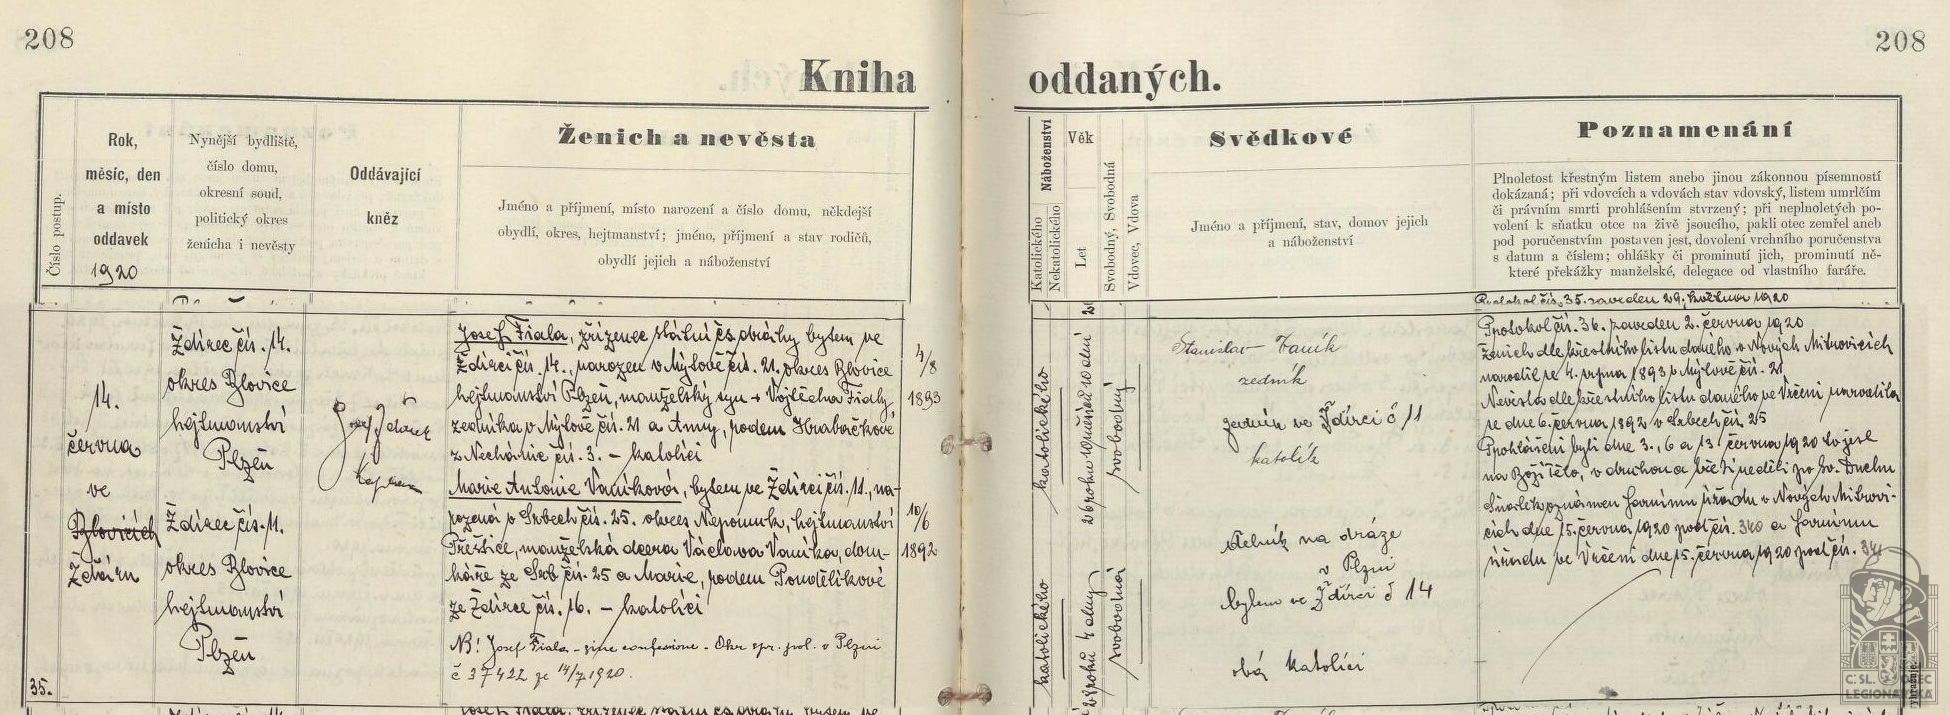 208
208
Kniha oddaných.
Číslo postup.
Rok,
měsíc, den
a místo
oddavek
1920
Nynější bydliště,
číslo domu,
okresní soud,
politický okres
ženicha i nevěsty
Oddávající
kněz
Ženich a nevěsta
Jméno a příjmení, místo narození a číslo domu, někdejší
obydlí, okres, hejtmanství; jméno, příjmení a stav rodičů,
obydlí jejich a náboženství
Náboženství
Katolického
Nekatolického
Věk
Let
Svobodný, Svobodná
Vdovec, Vdova
Svědkové
Jméno a příjmení, stav, domov jejich
a náboženství
Poznamenání
Plnoletost křestným listem anebo jinou zákonnou písemností
dokázaná; při vdovcích a vdovách stav vdovský, listem umrlčím
či právním smrti prohlášením stvrzený; při neplnoletých po-
volení k sňatku otce na živě jsoucího, pakli otec zemřel aneb
pod poručenstvím postaven jest, dovolení vrchního poručenstva
s datum a číslem; ohlášky či prominutí jich, prominutí ně-
které překážky manželské, delegace od vlastního faráře.
35.
14.
června
ve
Blovicích
Ždáru
Ždírec čís. 14.
okres Blovice
hejtmanství
Plzeň
Ždírec čís. 11.
okres Blovice
hejtmanství
Plzeň
Josef
kaplan
Josef Fiala, zřízenec státní čs dráhy bytem ve
Ždírci čís. 14., narozen v Mýlově čís. 21. okres Blovice
hejtmanství Plzeň, manželský syn + Vojtěcha Fialy
zedníka v Mýlově čís. 21 a Anny, rodem Hrabačkové
z Nechánic čís. 3. – katolíci
Marie Antonie Vaníková, bytem ve Ždírci čís. 11., na-
rozená v Srbech čís. 25. okres Nepomuk, hejtmanství
Přeštice, manželská dcera Václava Vaníka, dom-
káře ze Srb čís. 25 a Marie, rodem Pondělíkové
ze Ždírce čís. 16. – katolíci
NB! Josef Fiala – sine confessione. Okr. spr. pol. v Plzni
č 37422 ze 14/7 1920.
4/8
1893
10/6
1892
katolického
26 roků 10 měsíců 10 dní
svobodný
katolického
28 roků 4 dny
svobodná
Stanislav Vaník
zedník
ve Ždírci č 11
katolík
dělník na dráze
v Plzni
bytem ve Ždírci č 14
oba katolíci
Protokol čís. 35. zaveden 29. května 1920
Protokol čís. 36. zaveden 2. června 1920
Ženich dle křestního listu daného v Nových Mitrovicích
narodil se 4. srpna 1893 v Mýlově čís. 21
Nevěsta dle křestního listu daného ve Vrčeni narodila
se dne 6. června 1892 v Srbech čís. 25
Prohlášeni byli dne 3., 6 a 13 června 1920 to jest
na Boží Tělo, v druhou a třetí neděli po sv. Duchu
Sňatek oznámen farnímu úřadu v Nových Mitrovi-
cích dne 15. června 1920 pod čís. 340 a farnímu
úřadu ve Vrčeni dne 15. června 1920 pod čís. 341
Č:SL. OBEC
LEGIONÁŘSKÁ